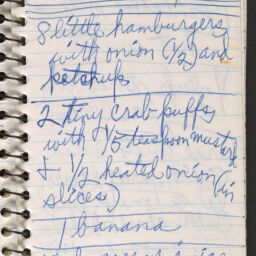 8 little hamburgers
with onion (1/2) and
ketchup
2 tiny crab puffs
with 1/5 teaspoon mustard
& 1/2 heated onion (in
slices)
1 banana